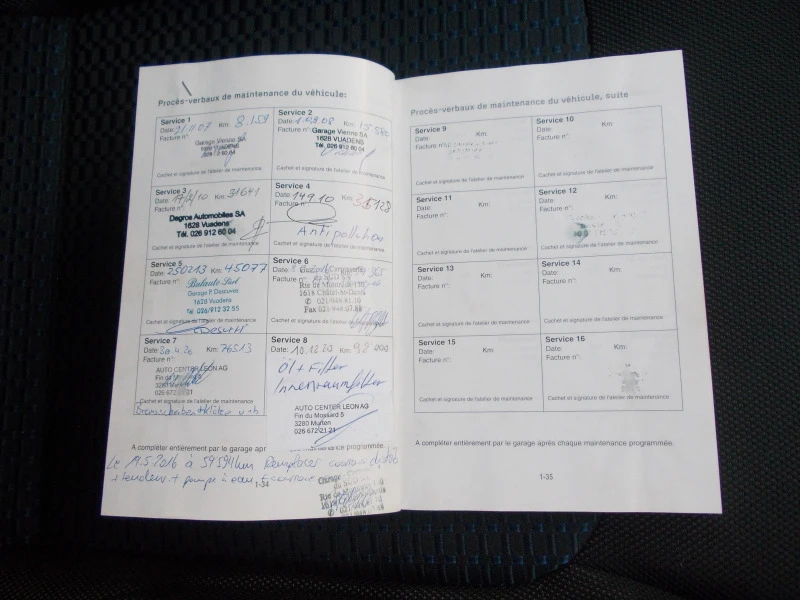 Procès-verbaux de maintenance du véhicule:
Service 1
Date: Km: 8.159
Facture n°:
Garage Vienno SA
1628 VUADENS
Cachet et signature de l'atelier de maintenance
Service 2
Date: Km:
Facture n°:
Garage Vienno SA
1628 VUADENS
Tél. 026 912 60 04
Cachet et signature de l'atelier de maintenance
Service 3
Date: Km: 31641
Facture n°:
Degros Automobiles SA
1628 Vuadens
Tél. 026 912 60 04
Cachet et signature de l'atelier de maintenance
Service 4
Date: 14 9 10 Km:
Facture n°:
Antipollution
Cachet et signature de l'atelier de maintenance
Service 5
Date: 250213 Km: 45077
Facture n°:
Garage P. Descuves
1628 Vuadens
Tél. 026/912 32 55
Cachet et signature de l'atelier de maintenance
Service 6
Date: Km:
Facture n°:
1618 Châtel-St-Denis
✆ 021/948.81.10
Fax 021/948.07.88
Cachet et signature de l'atelier de maintenance
Service 7
Date: 30.4.20 Km: 76513
Facture n°:
AUTO CENTER LEON AG
Fin du
3280 Murten
026 672 21 21
Cachet et signature de l'atelier de maintenance
Bremsscheiben + Klötze v + h
Service 8
Date: 10.12.20 Km: 92 000
Öl + Filter
Innenraumfilter
AUTO CENTER LEON AG
Fin du Mossard 5
3280 Murten
026 672 21 21
A compléter entièrement par le garage après chaque maintenance programmée.
Le 19.5.2016 à 59594 km Remplacer courroie distrib
+ tendeur + pompe à eau
1-34
Procès-verbaux de maintenance du véhicule, suite
Service 9
Date: Km:
Facture n°:
Cachet et signature de l'atelier de maintenance
Service 10
Date: Km:
Facture n°:
Cachet et signature de l'atelier de maintenance
Service 11
Date: Km:
Facture n°:
Cachet et signature de l'atelier de maintenance
Service 12
Date: Km:
Facture n°:
Cachet et signature de l'atelier de maintenance
Service 13
Date: Km:
Facture n°:
Cachet et signature de l'atelier de maintenance
Service 14
Date: Km:
Facture n°:
Cachet et signature de l'atelier de maintenance
Service 15
Date: Km:
Facture n°:
Cachet et signature de l'atelier de maintenance
Service 16
Date: Km:
Facture n°:
Cachet et signature de l'atelier de maintenance
A compléter entièrement par le garage après chaque maintenance programmée.
1-35